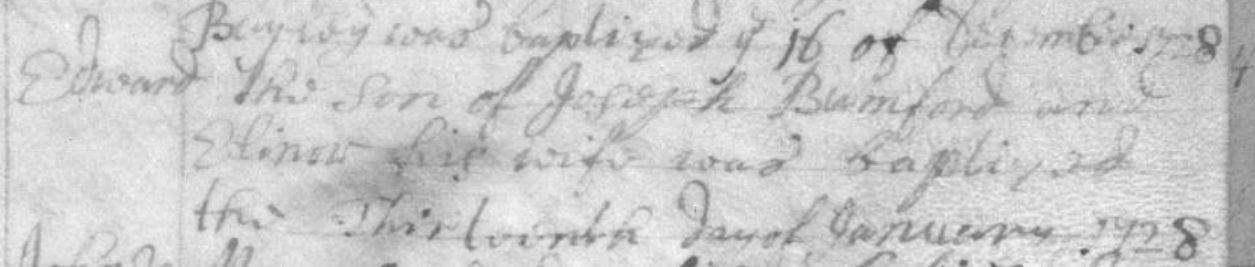 was baptized ye 16 of December 1728
Edward the Son of Joseph Bumford and
Elinor his wife was baptized
the Thirteenth day of January 1728